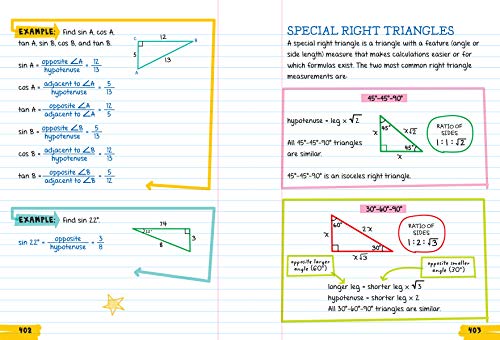 EXAMPLE: Find sin A, cos A,
tan A, sin B, cos B, and tan B.
C 12 B
5
13
A
sin A = opposite ∠A / hypotenuse = 12/13
cos A = adjacent to ∠A / hypotenuse = 5/13
tan A = opposite ∠A / adjacent to ∠A = 12/5
sin B = opposite ∠B / hypotenuse = 5/13
cos B = adjacent to ∠B / hypotenuse = 12/13
tan B = opposite ∠B / adjacent to ∠B = 5/12
EXAMPLE: Find sin 22°.
sin 22° = opposite / hypotenuse = 3/8
22°
3
8
402
SPECIAL RIGHT TRIANGLES
A special right triangle is a triangle with a feature (angle or
side length) measure that makes calculations easier or for
which formulas exist. The two most common right triangle
measurements are:
45°-45°-90°
hypotenuse = leg × √2
All 45°-45°-90° triangles
are similar.
45°-45°-90° is an isoceles right triangle.
45°
x x√2
45°
x
RATIO OF
SIDES
1 : 1 : √2
30°-60°-90°
60°
x 2x
30°
x√3
RATIO OF
SIDES
1 : 2 : √3
opposite larger
angle (60°)
opposite smaller
angle (30°)
longer leg = shorter leg × √3
hypotenuse = shorter leg × 2
All 30°-60°-90° triangles are similar.
403